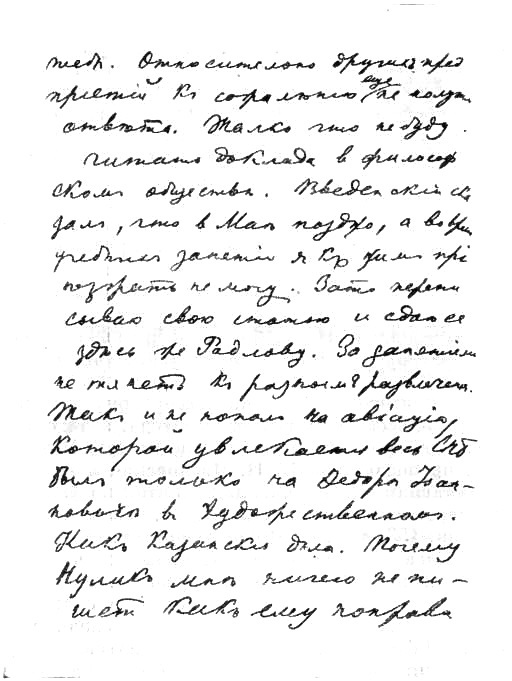 тебѣ. Относительно другихъ пред
пріятій къ сожалѣнію еще не получ
отвѣта. Жалко что не буду
читать доклада в философ
скомъ обществѣ. Введенскій ска
залъ, что в Маѣ поздно, а во врем
учебныхъ занятій я къ ним прі
не могу. Зато перепи
сываю свою статью и сдам ее
здѣсь же Радлову. За занятіями
не тянетъ къ разнымъ развлечен.
Такъ и не попалъ на авіацію,
которой увлекается весь Спб
былъ только на Федорѣ Іоан-
новичѣ в Художественномъ.
Какъ Казанскія дѣла. Почему
Нуликъ мнѣ ничего не пи-
шетъ Какъ ему понрави